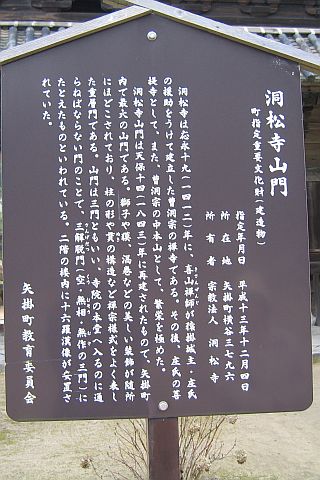 洞松寺山門
町指定重要文化財(建造物)
指定年月日 平成十三年十二月四日
所在地 矢掛町横谷三七九六
所有者 宗教法人 洞松寺
洞松寺は応永十九(一四一二)年に、喜山禅師が猿掛城主・庄氏
の援助をうけて建立した曹洞宗の禅寺である。その後、庄氏の菩
提寺として、また、曹洞宗の中本山として、繁栄を極めた。
洞松寺山門は天保十四(一八四三)年に再建されたもので、矢掛町
内で最大の山門である。獅子や獏、渦巻などの美しい装飾が随所
にほどこされており、柱の形や貫の構造など禅宗様式をよく表し
た重層門である。山門は三門ともいい、寺院の本堂へ入るのに通
らねばならない門のことで、三解脱門(空・無相・無作の三門)に
たとえたものといわれている。二階の楼内に十六羅漢像が安置さ
れていた。
矢掛町教育委員会